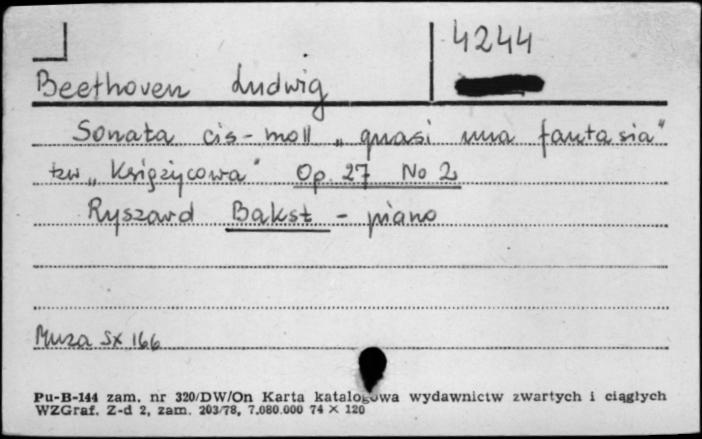 4244
Beethoven Ludwig
Sonata cis-moll „quasi una fantasia"
tzw „Księżycowa" Op. 27 No 2
Ryszard Bakst - piano
Muza SX 166
Pu-B-144 zam. nr 320/DW/On Karta katalogowa wydawnictw zwartych i ciągłych
WZGraf. Z-d 2, zam. 203/78, 7.080.000 74 × 120